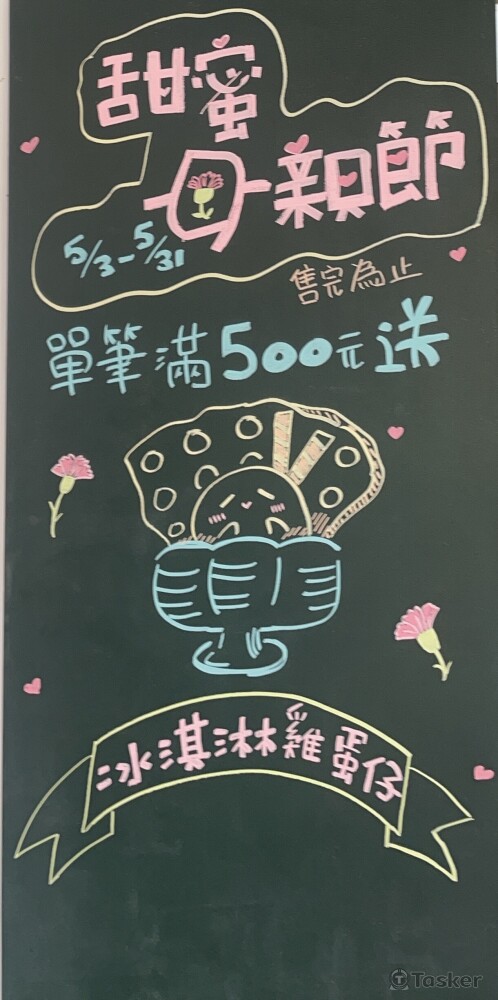 甜蜜
母親節
5/3-5/31
售完為止
單筆滿500元送
冰淇淋雞蛋仔
Tasker